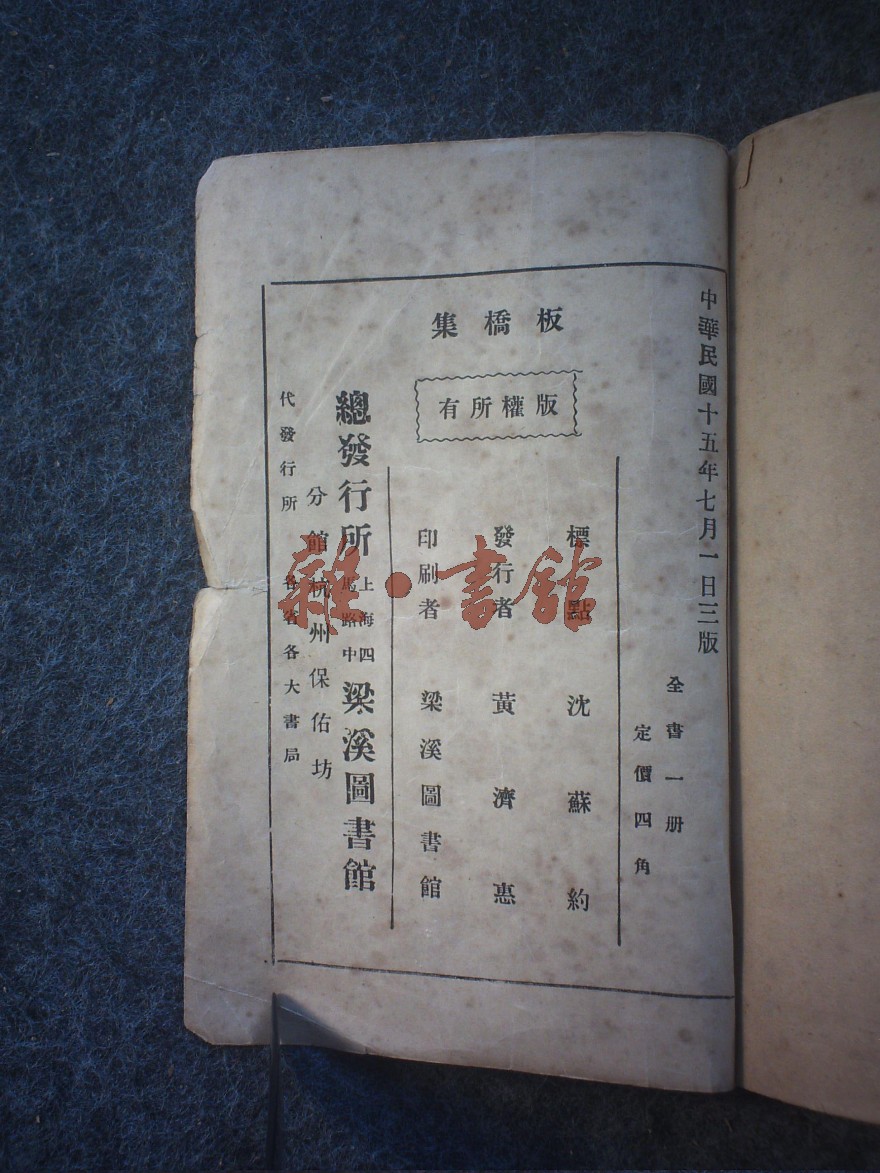 中華民國十五年七月一日三版
全書一册
定價四角
板橋集
版權所有
標點 沈蘇約
發行者 黃濟惠
印刷者 梁溪圖書館
總發行所 上海四馬路中 梁溪圖書館
分館 杭州保佑坊
代發行所 各省各大書局
雜·書館